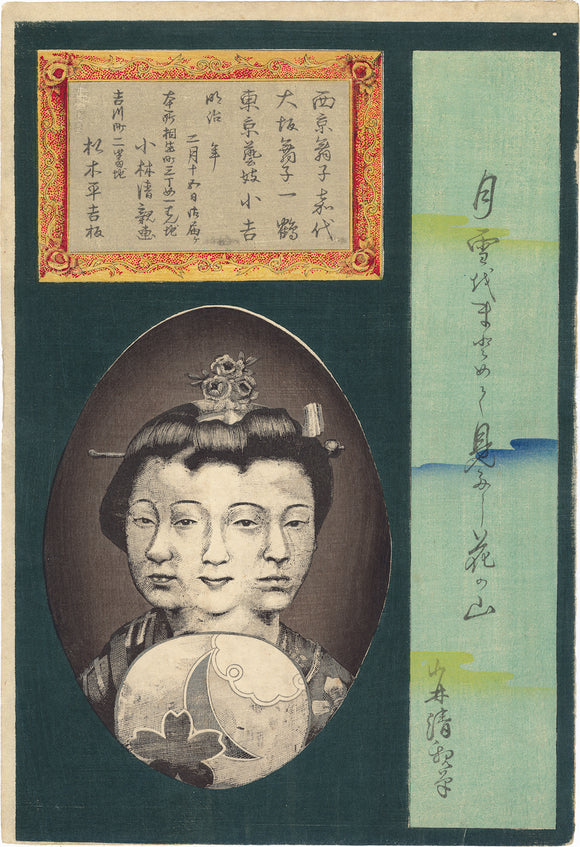 月雪代まとめて見なし花の山
小林清親筆
西京舞子嘉代
大坂舞子一鶴
東京藝妓小吉
明治　年
二月十五日御届
本所相生町三丁め一番地
小林清親画
吉川町二番地
松木平吉板